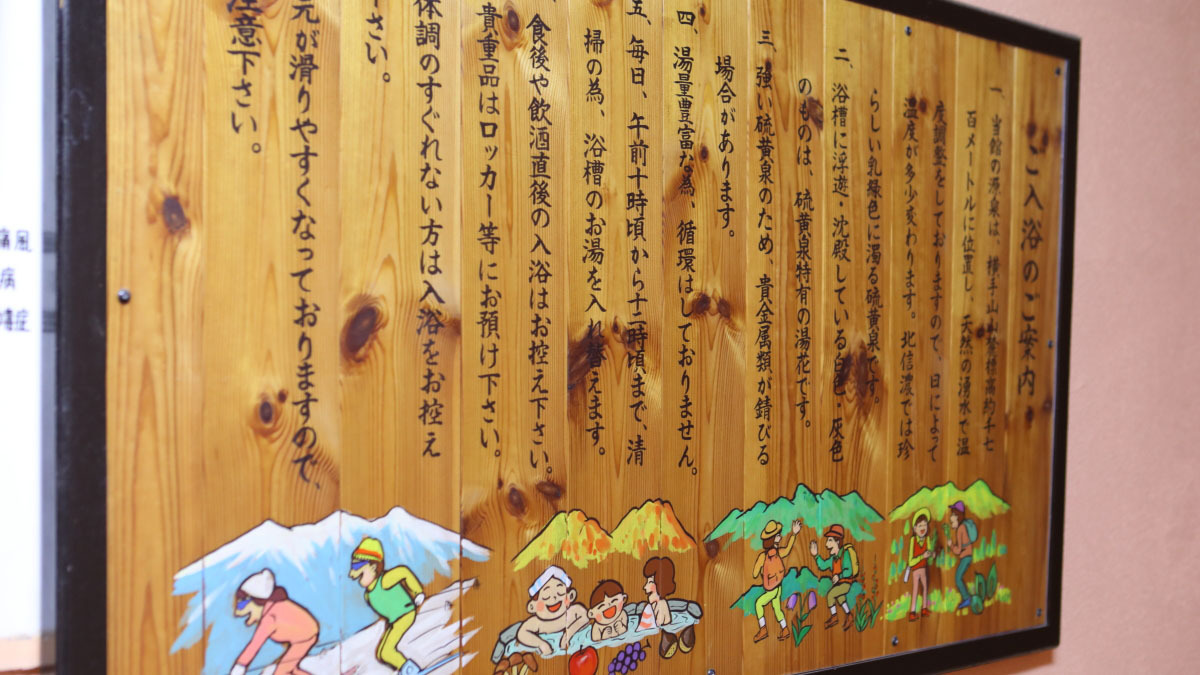 ご入浴のご案内
一、当館の源泉は、横手山山麓標高約千七
百メートルに位置し、天然の湧水で温
度調整をしておりますので、日によって
温度が多少変わります。北信濃では珍
らしい乳緑色に濁る硫黄泉です。
二、浴槽に浮遊・沈殿している白色・灰色
のものは、硫黄泉特有の湯花です。
三、強い硫黄泉のため、貴金属類が錆びる
場合があります。
四、湯量豊富な為、循環はしておりません。
五、毎日、午前十時頃から十二時頃まで、清
掃の為、浴槽のお湯を入れ替えます。
食後や飲酒直後の入浴はお控え下さい。
貴重品はロッカー等にお預け下さい。
体調のすぐれない方は入浴をお控え
さい。
元が滑りやすくなっておりますので、
注意下さい。
痛風
病
症